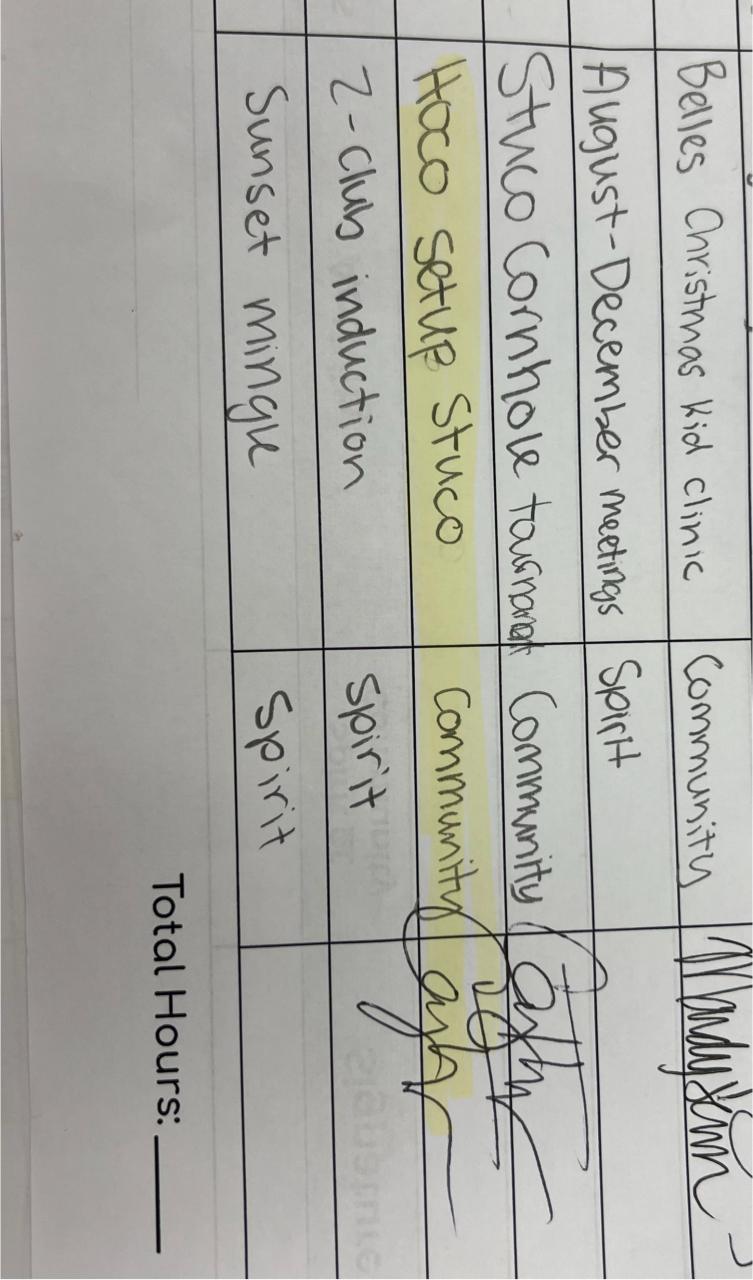 Belles Christmas kid clinic Community
August-December meetings Spirit
Stuco Cornhole tournament Community
Hoco setup Stuco Community
Z-club induction Spirit
Sunset mingle Spirit
Total Hours: